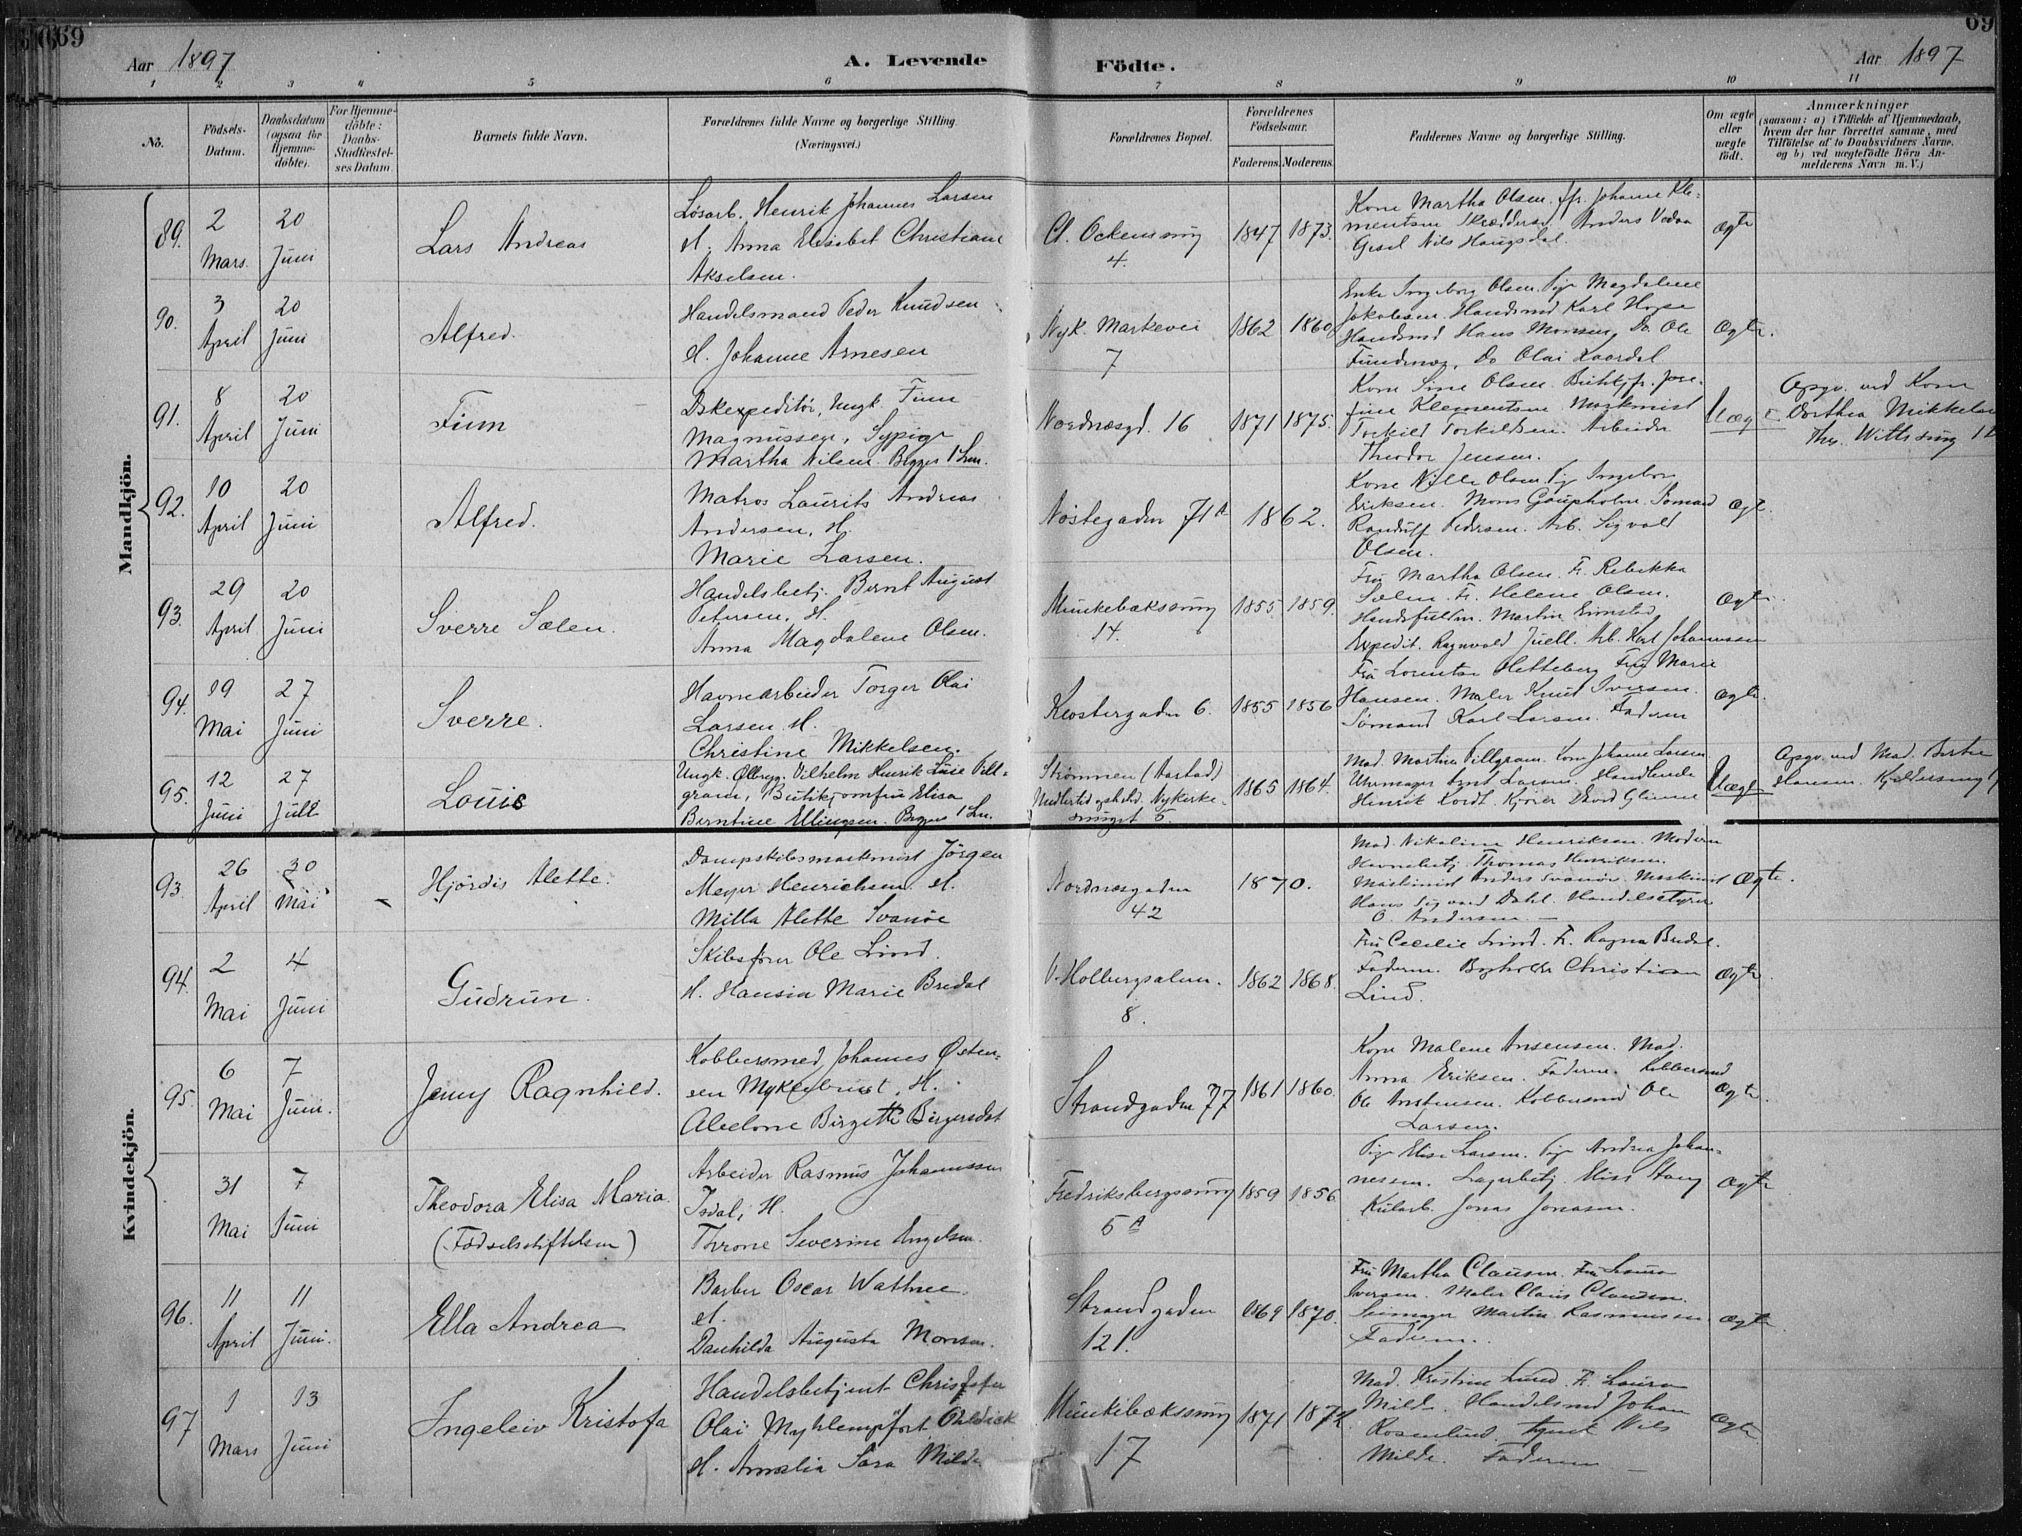 69
69
Aar 1897
A. Levende
Födte.
Aar 1897
1 2 3 4 5 6 7 8 9 10 11
No.
Födsels-
Datum.
Daabsdatum
(ogsaa for
Hjemme-
döbte).
For Hjemme-
döbte:
Daabs-
Stadfæstel-
ses Datum
Barnets fulde Navn.
Forældrenes fulde Navne og borgerlige Stilling.
(Næringsvei.)
Forældrenes Bopæl.
Forældrenes
Födselsaar.
Faderens. Moderens.
Faddernes Navne og borgerlige Stilling.
Om ægte
eller
uægte
födt.
Anmærkninger
(saasom: a) i Tilfælde af Hjemmedaab,
hvem der har forrettet samme, med
Tilföielse af to Daabsvidners Navne,
og b) ved uægtefödte Börn An-
melderens Navn m. V.)
Mandkjön.
89.
2
Mars.
20
Juni
Lars Andreas
Løsarb. Henrik Johannes Larsen
H. Anna Elisabet Christiane
Akselsen.
Cl. Ockensmug
4.
1847 1873.
Kone Martha Olsen. Jfr. Johanne Kle-
mentsen Skræddersv. Anders Vedaa
Gesel Nils Haugsdal.
Ægte
90.
3
April
20
Juni
Alfred.
Handelsmand Peder Knudsen
H. Johanne Arnesen
Nyk. Markevei
7
1862 1860
Enke Ingeborg Olsen. Pige Magdalene
Jakobsen. Handsmd Karl Hope
Handsmd Hans Monsen, Do Ole
Do Olai
Ægte.
91.
8
April
20
Juni
Finn
Dskexpeditör, Ungk. Finn
Magnussen, Sypige
Martha Nilsen. Begges 1ste Lm.
Nordnæsgd. 16
1871 1875.
Kone Sine Olsen. Butikjfr. Jose-
fine Klementsen Maskinist
Torkild Torkildsen. Arbeider
Theodor Jensen.
Uægte
Opgv. ved Kone
Dorthea Mikkelsen
92.
10
April
20
Juni
Alfred.
Matros Laurits Andreas
Andersen, H.
Marie Larsen.
Nöstegaden 71A
1862.
Kone Nille Olsen. Pg Ingebor
Eriksen. Mons Gaupholm. Sømand
Randulf Pedersen. Arb. Sigvald
Olsen.
Ægt.
93.
29
April
20
Juni
Sverre Sælen.
Handelsbetj. Bernt August
Petersen, H.
Anna Magdalene Olsen.
Munkebæksmug
14.
1855 1859.
Fru Martha Olsen. Fr. Rebekka
Sælen. Fr. Helene Olsen.
Handsfuldm. Martin
Expedit. Ragnvald Juell. Arb. Karl Johannessen
Ægte.
94.
19
Mai
27
Juni
Sverre.
Havnearbeider Torger Olai
Larsen. H.
Christine Mikkelsen.
Klostergaden 6.
1855 1856
Fru Lorentse Hetteberg Fru Marie
Hansen. Maler Knud Iversen.
Sømand Karl Larsen. Faderen
Ægte.
95.
12
Juni
27
Juli
Louis
Ungk. Ølbryg. Vilhelm Henrik Louie Pill-
gram, Butikjomfru Elisa
Berntine Ellingsen. Begges 1 Lm.
Strømmen (Aarstad)
Midlertid. ophold. Nykirke-
smuget 5.
1865 1864.
Mad. Martine Pillgram. Jom Johanne Larsen
Uhrmager Larsen. Handlende
Henrik Kordt.
Uægte
Opgv. ved Mad. Berthe
Hansen.
Kvindekjön.
93.
26
April
30
Mai
Hjördis Alette.
Dampskibsmaskinist Jörgen
Meyer Henrichsen. H.
Milla Alette Svanöe
Nordnæsgaden
42
1870.
Mad. Nikoline Henriksen. Moderen
Havnebetj. Thomas Henriksen.
Maskinist Anders Svanöe. Maskinist
Hans Sigvard Dahl. Handelsstyrer
O. Andersen.
Ægte.
94.
2
Mai
4
Juni
Gudrun.
Skibsfører Ole Lind.
H. Hansin Marie Bredal
V. Holbergsalm.
8.
1862 1868.
Fru Cecilie Lind. Fr. Ragna Bredal.
Faderen. Bogholder Christian
Lind.
Ægte
95.
6
Mai
7
Juni.
Jenny Ragnhild.
Kobbersmed Johannes Østen-
sen Myklebust, H.
Abelone Birgitte Birgersdat
Strandgaden 77
1861 1860.
Kone Malene Andersen. Mad.
Anna Eriksen. Faderen. Kobbersmd
Ole Østensen. Kobbersmd Ole
Larsen.
Ægte.
31
Mai
7
Juni
Theodora Elisa Maria.
(Födselsstiftelsen)
Arbeider Rasmus Johannessen
Isdal, H.
Throne Severine Engelsen.
Fredriksbergsmug
5A
1859 1856
Pige Elise Larsen. Pige Andrea Johan-
nessen. Lagerbetj.
Kularb. Jonas Jonasen.
Ægte
96.
11
April
11
Juni.
Ella Andrea
Barber Oscar Wathnee.
H.
Danhilda Augusta Monsen.
Strandgaden
121.
1869 1870.
Fru Martha Clausen. Fru Laura
Iversen. Maler Claus Clausen.
Martin Rasmussen
Faderen.
Ægte
97
1
Mars
13
Juni
Ingeleiv Kristofa
Handelsbetjent Christofer
Olai
H. Amalia Sara Milde
Munkebæksmug
17
1871 1872.
Mad. Kristine Lund. Fr. Laura
Milde. Handelsmd Johan
Rosenlund. Agent Nils
Milde. Faderen
Ægte